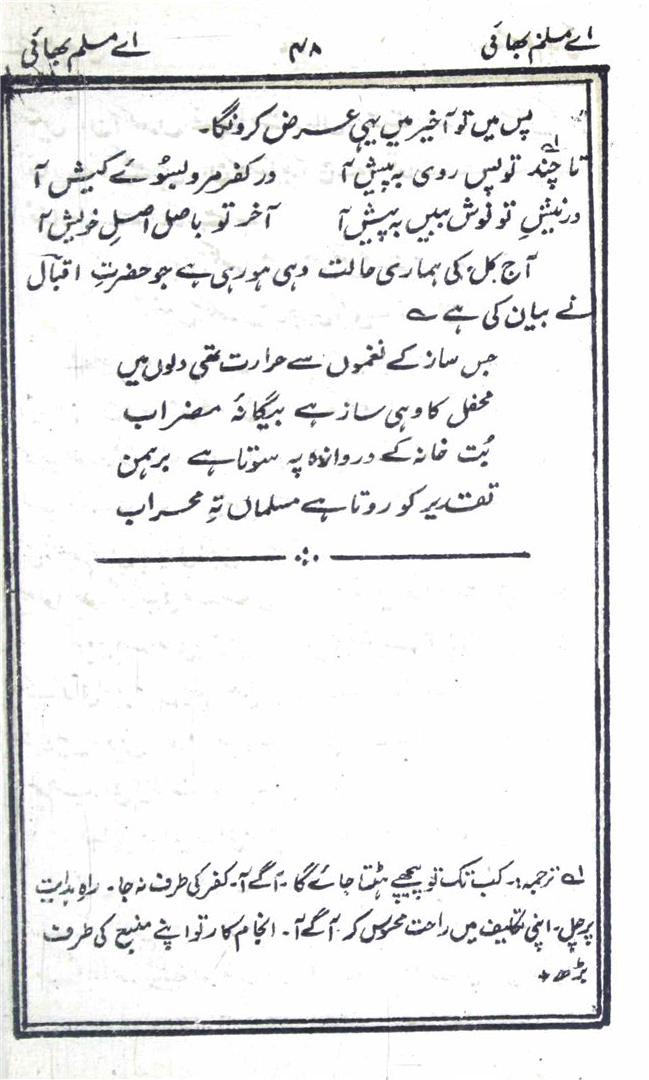 اے مسلم بھائی ۴۸ اے مسلم بھائی
پس میں تو آخیر میں یہی عرض کرونگا۔
تا چند تو پس روی بہ پیش آ در کفر مرو بسوئے کیش آ
در نیشِ تو نوش بیں بہ پیش آ آخر تو باصل اصلِ خویش آ
آج کل کی ہماری حالت وہی ہو رہی ہے جو حضرتِ اقبال
نے بیان کی ہے ؎
جس ساز کے نغموں سے حرارت تھی دلوں میں
محفل کا وہی ساز ہے بیگانۂ مضراب
بُت خانہ کے دروازہ پہ سوتا ہے برہمن
تقدیر کو روتا ہے مسلماں تہِ محراب
لہ ترجمہ:۔ کب تک تو پیچھے ہٹتا جائے گا۔ آگے آ۔ کفر کی طرف نہ جا۔ راہِ ہدایت
پر چل۔ اپنی تکلیف میں راحت محسوس کر۔ آگے آ۔ انجام کار تو اپنے منبع کی طرف
بڑھ ۔